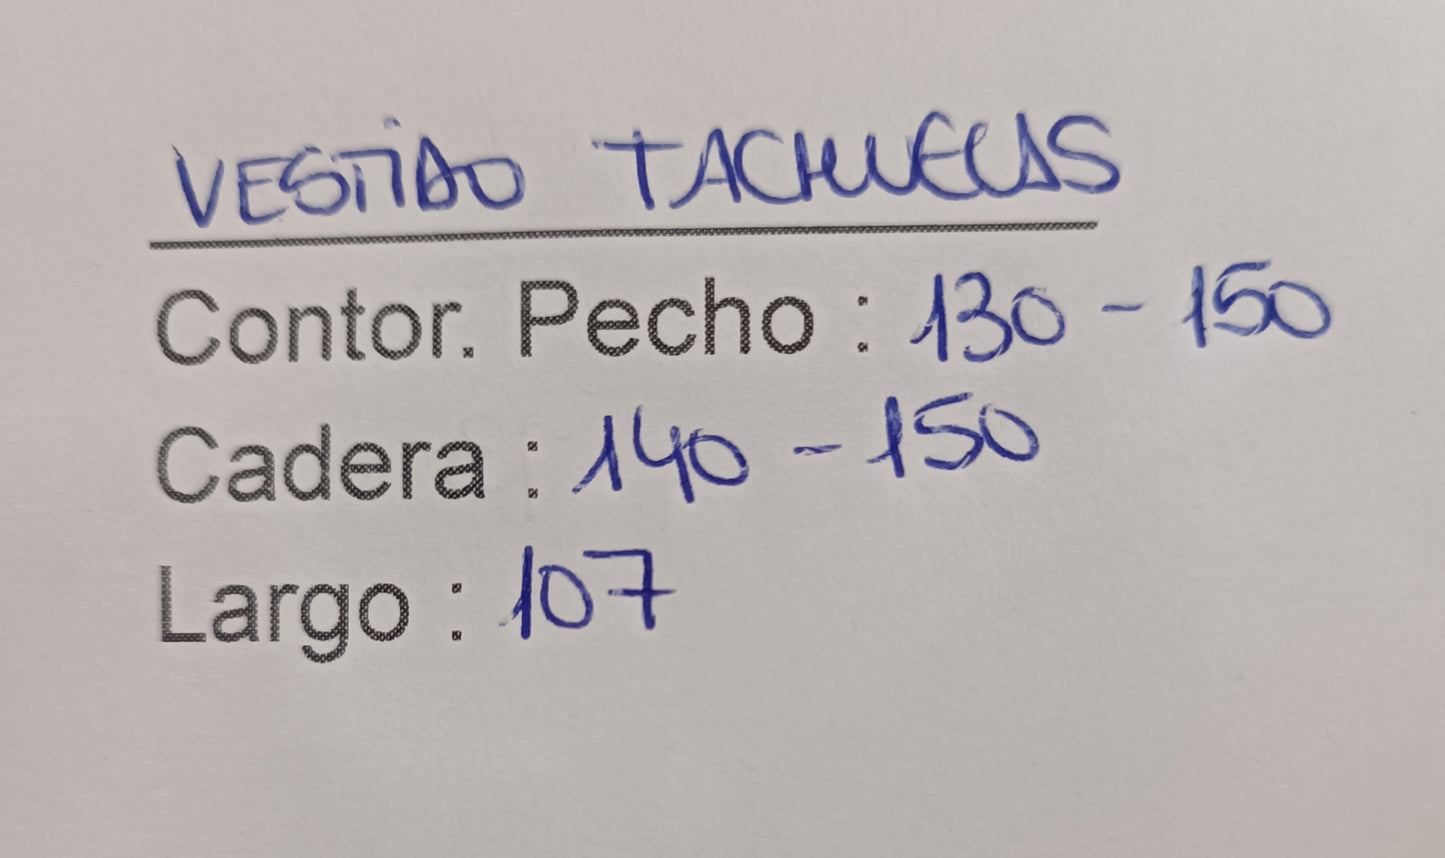 VESTIDO TACHUELAS
Contor. Pecho : 130 - 150
Cadera : 140 - 150
Largo : 107